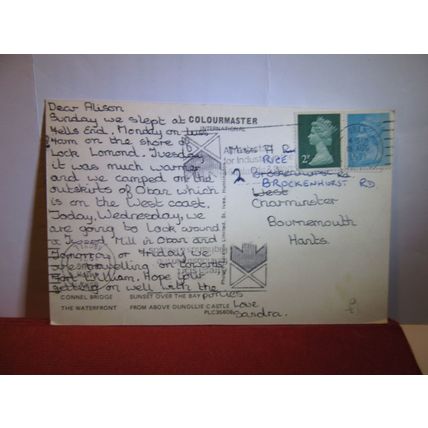 Dear Alison
Sunday we slept at
Hells End, Monday on
Ham on the shore of
Lock Lomond. Tuesday
it was much warmer
and we camped on the
outskirts of Oban which
is on the West coast.
Today, Wednesday, we
are going to look around
a Tweed Mill in Oban and
tomorrow or Friday we
are travelling on towards
Fort William. Hope your
getting on well with the
ponies
Love
Sandra.
COLOURMASTER
INTERNATIONAL
for Industr
Miss A R
RICE
2 Brockenhurst Rd
BROCKENHURST RD
West
Charminster
Bournemouth
Hants.
2P
CONNEL BRIDGE
THE WATERFRONT
SUNSET OVER THE BAY
FROM ABOVE DUNOLLIE CASTLE